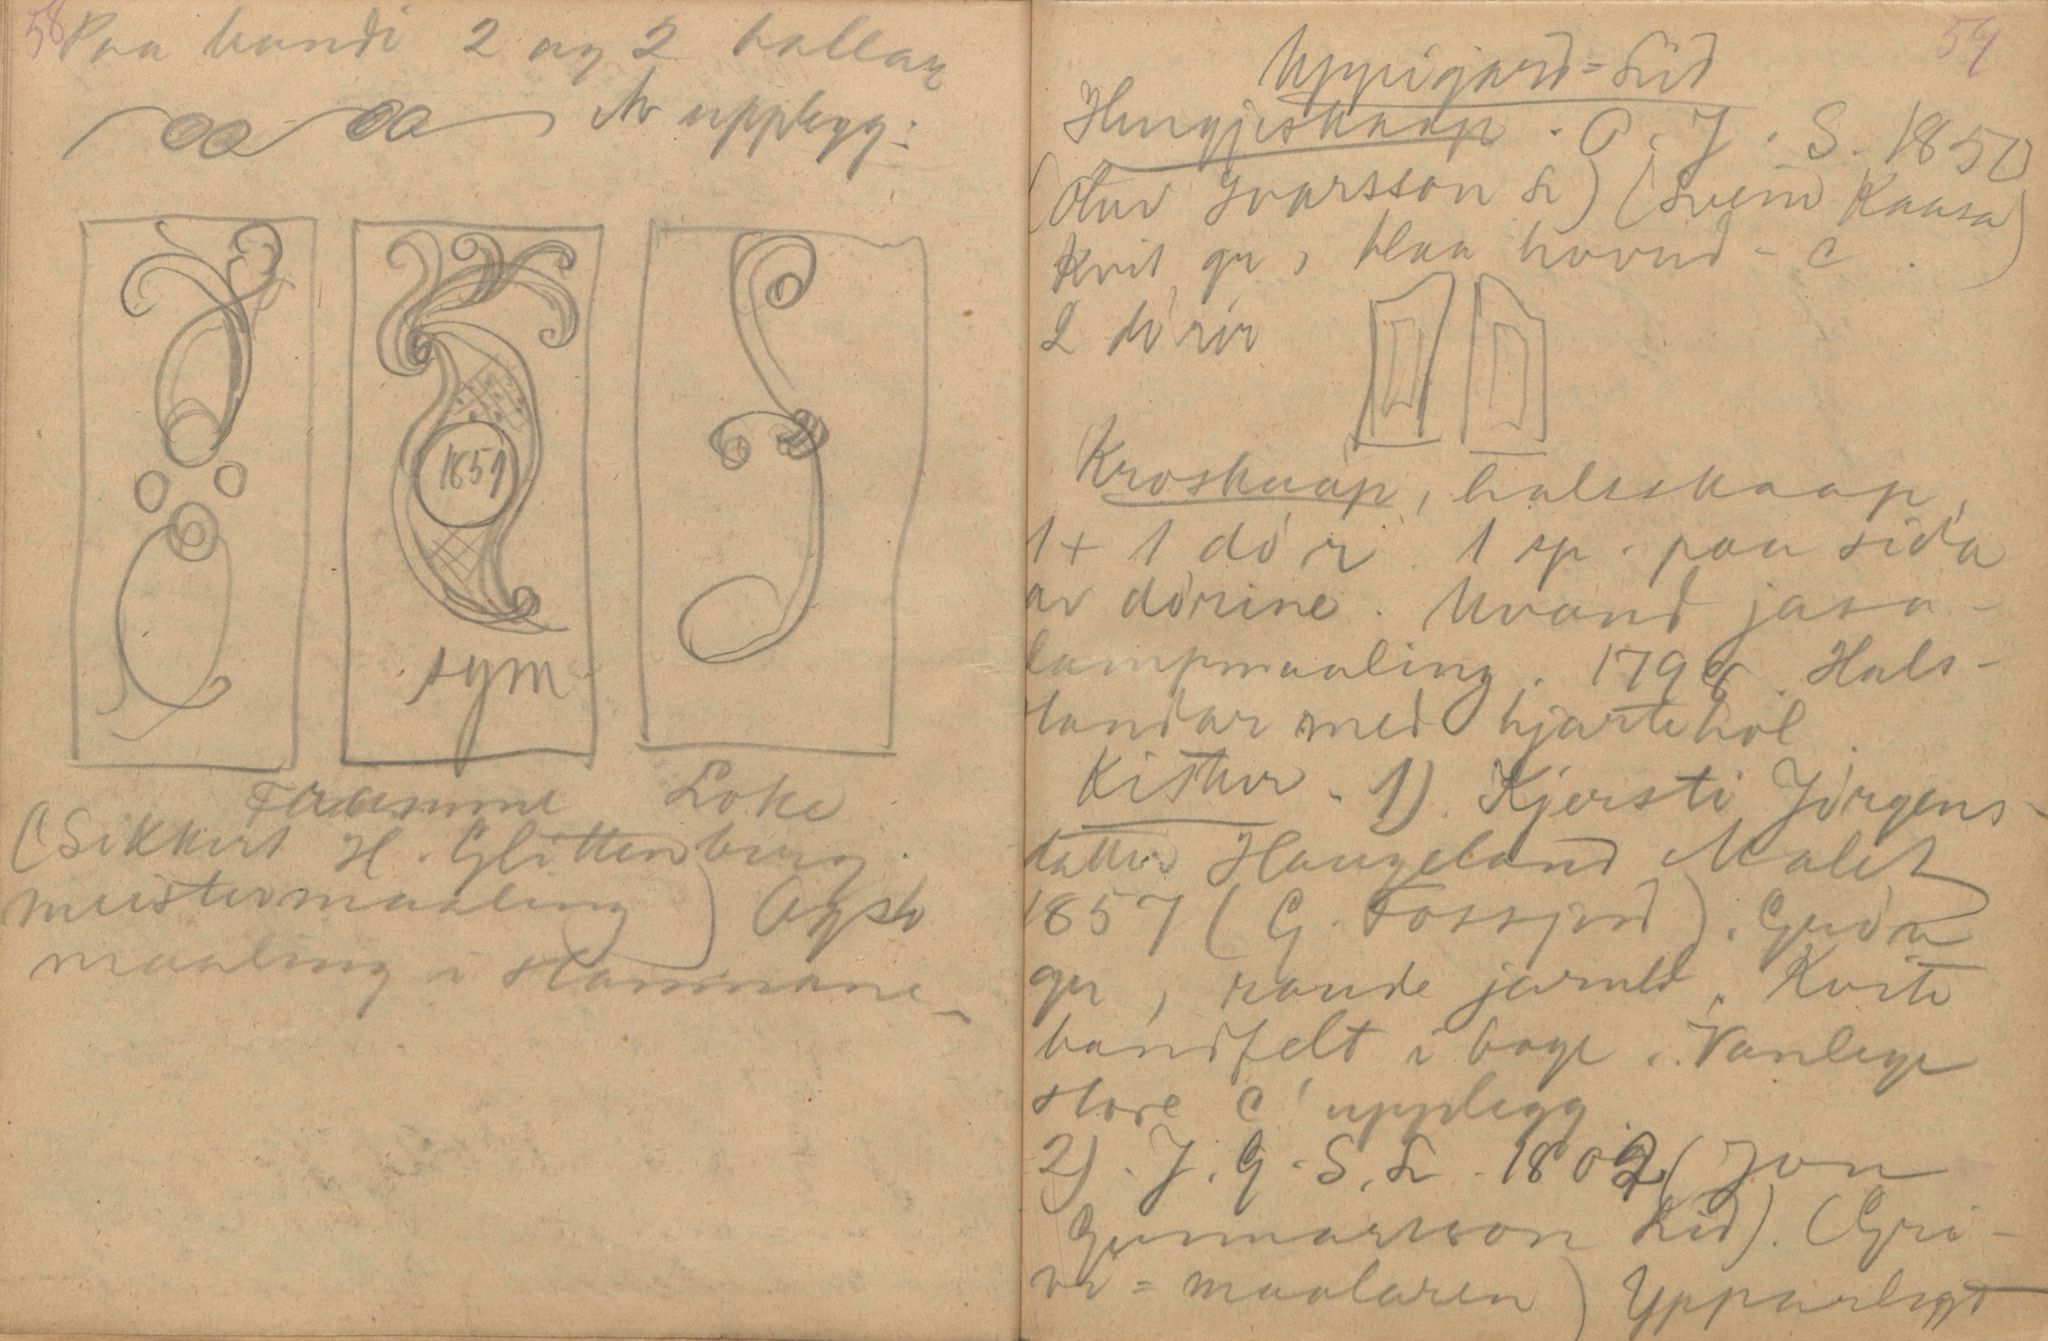 58
Paa bandi 2 og 2 ballar
Ar upplegg:
1859
sym
Framme Loke
(Sikkert H. Glittenberg.
meistermaaling) Ogso
maaling i stammane
59
Uppigard-Lid
Hengjeskaap. O. J. S. 1850
(Olav Ivarsson L) (Svein Kaasa)
Kvit gr, blaa hovud-c.
2 dörir
Kroskaap, halsskaap,
1+1 dör. 1 sp. paa sida
av dörine. Uvand jasa-
lampmaaling. 1798. Hals-
standar med hjartehol
Kistur. 1) Kjersti Jörgens-
datter Haugeland Malet
1857 (G. Fossjord).
gr, raude jarneld. Kvite
bandfelt i boge. Vanlege
store C upplegg.
2). J. G. S. L. 1802 (Jon
Gunnarsson Lid). (Gri-
ve-maalaren) Ypparlegt